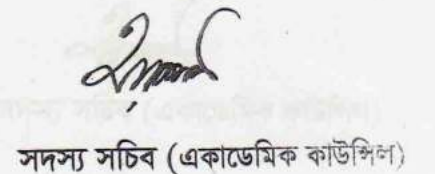 সদস্য সচিব (একাডেমিক কাউন্সিল)